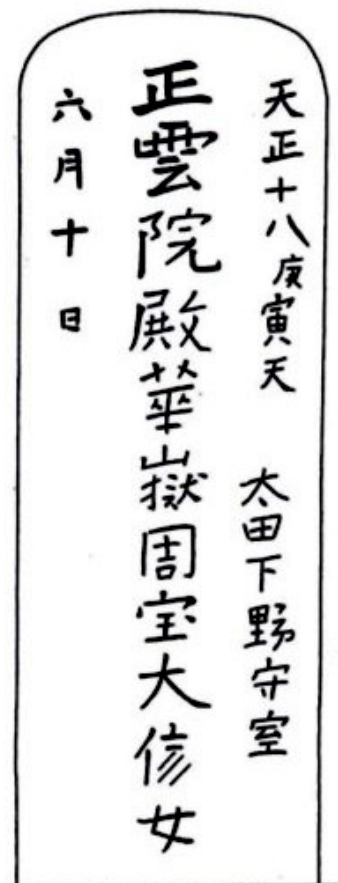 天正十八庚寅天　太田下野守室
正雲院殿華嶽周宝大信女
六月十日